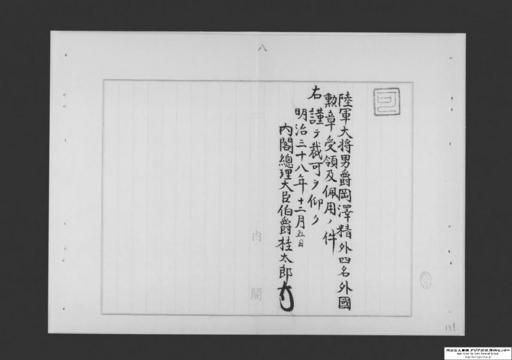 八
陸軍大将男爵岡澤精外四名外國
勲章受領及佩用ノ件
右謹テ裁可ヲ仰ク
明治三十八年十二月五日
内閣總理大臣伯爵桂太郎
内閣